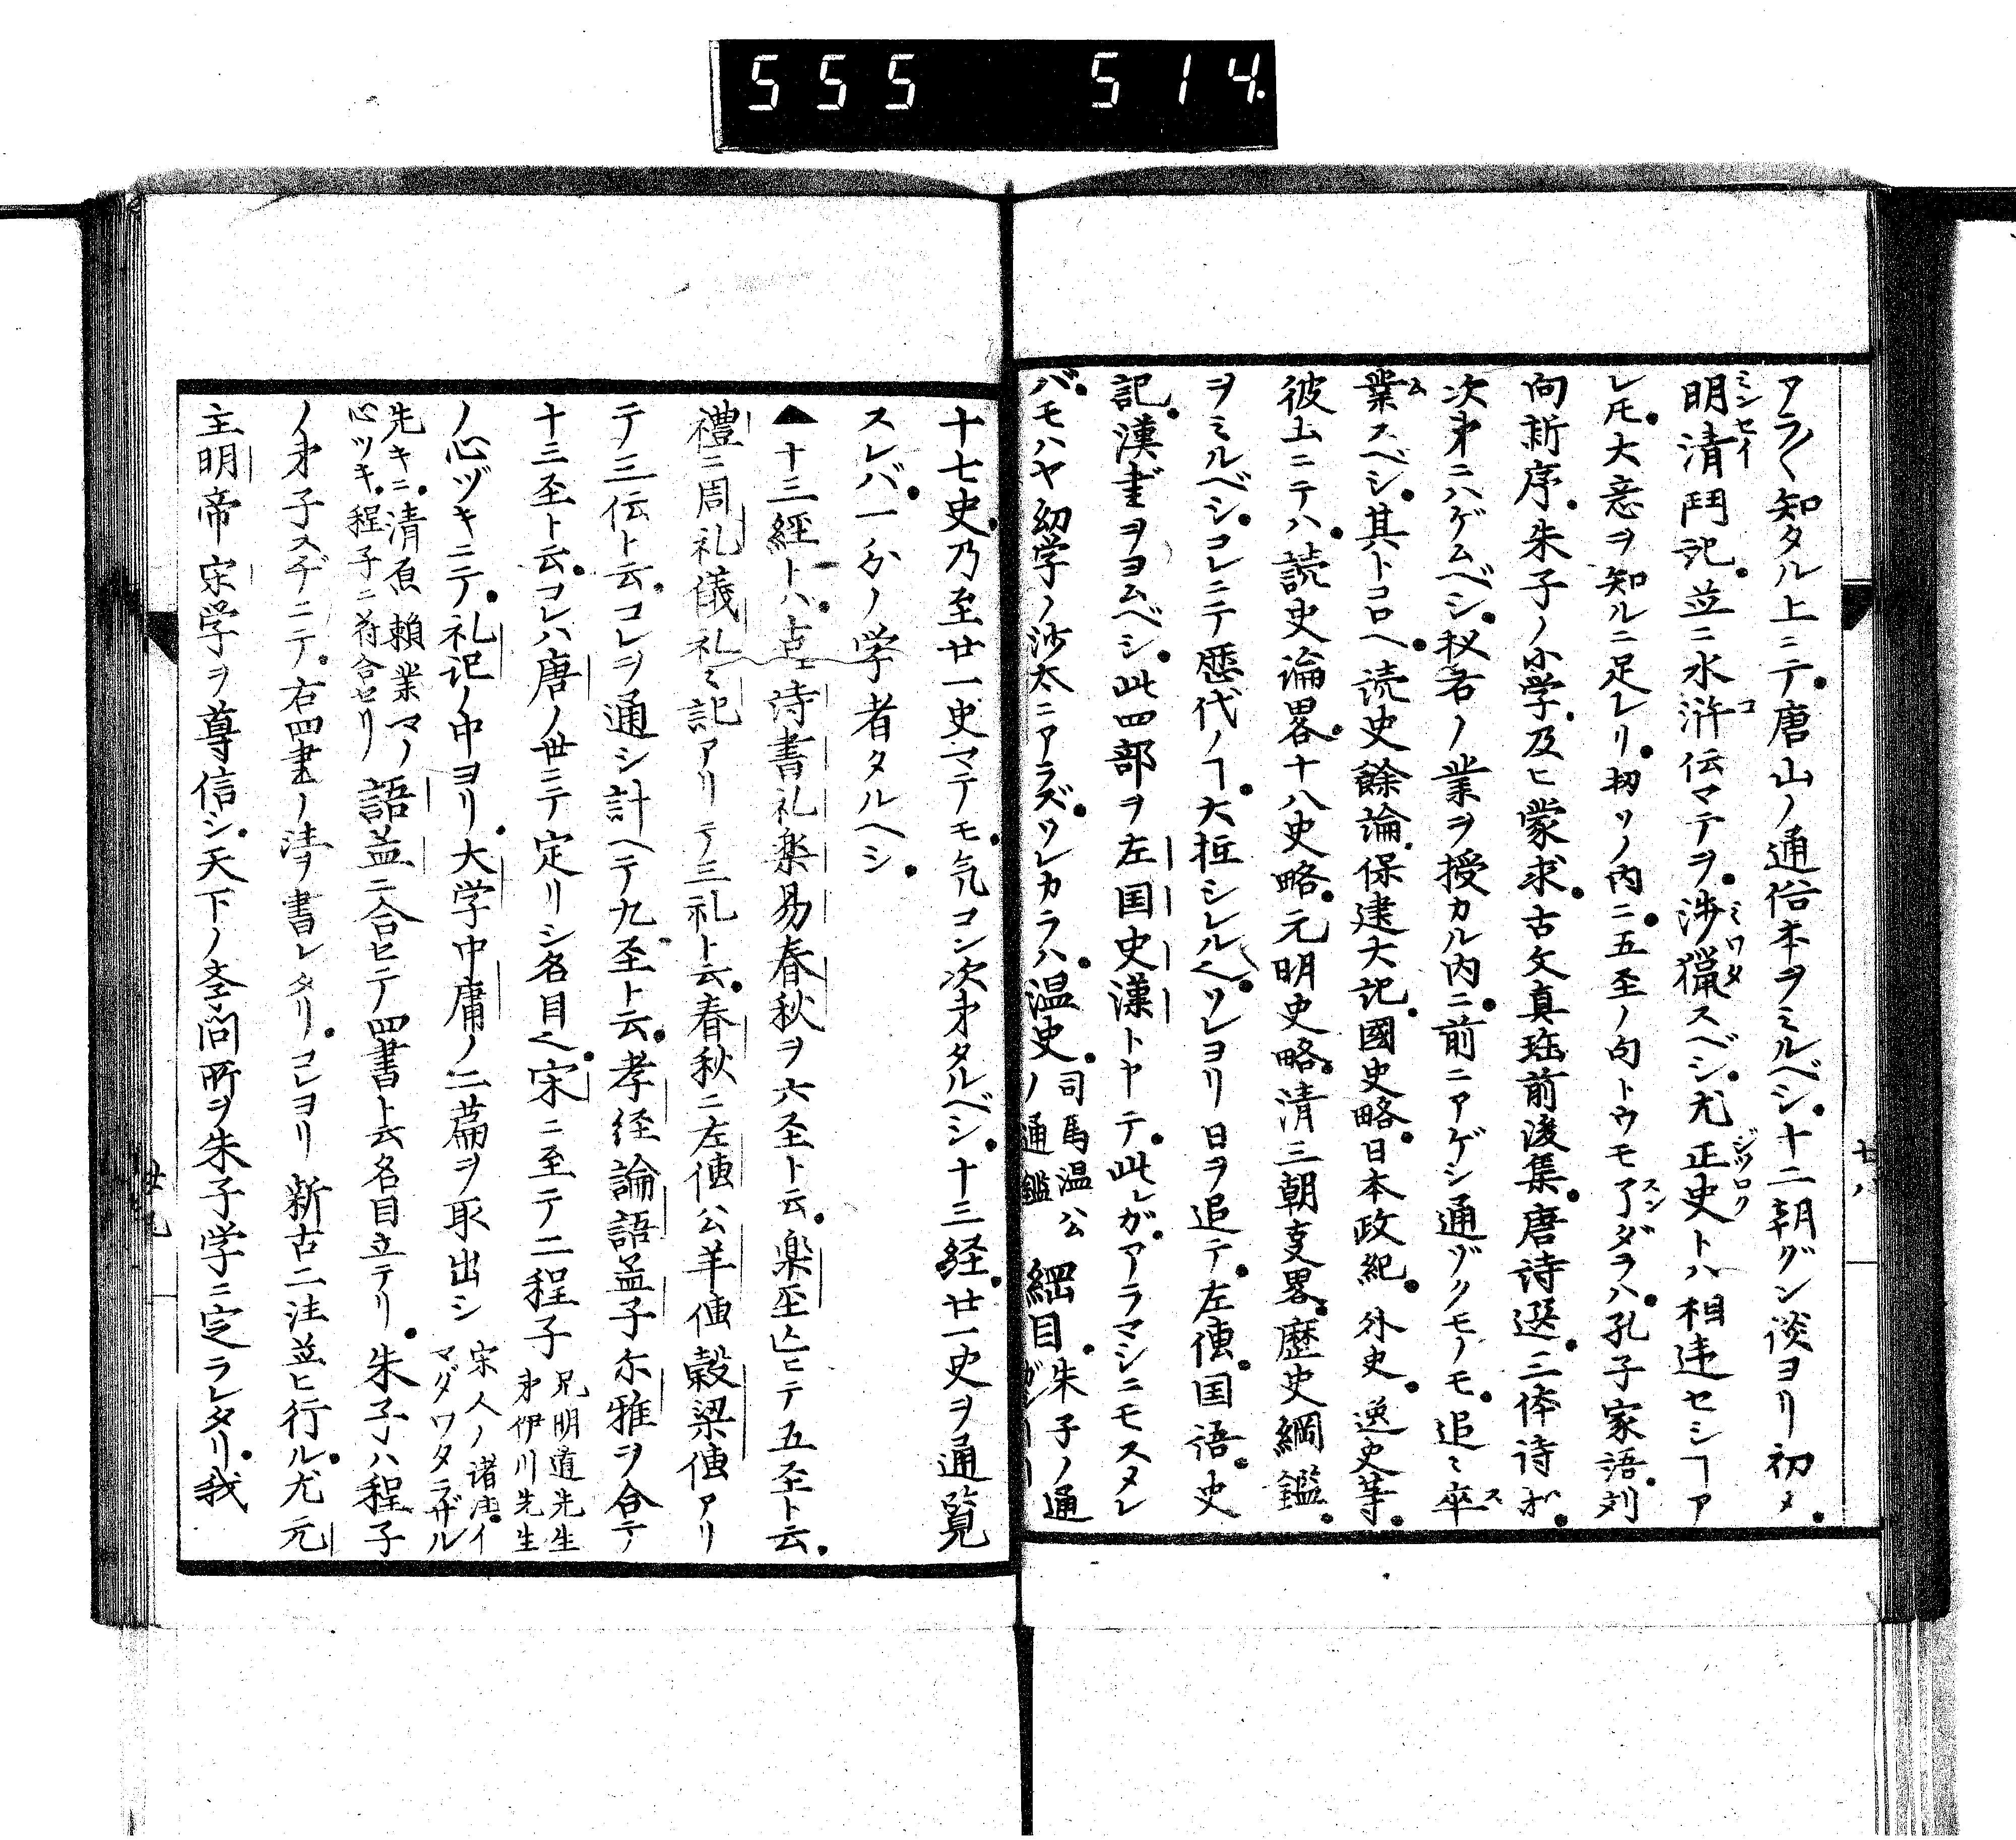 555 514.
アラ〱知タル上ニテ。唐山ノ通俗本ヲミルベシ。十二朝グン談ヨリ初メ。
明清闘記。並ニ水滸伝マテヲ。渉猟スベシ。尤正史トハ相違セシヿア
レ𪜈。大意ヲ知ルニ足レリ。扨ソノ内ニ。五至ノ句トウモ了ダラハ。孔子家語。刘
向新序。朱子ノ小学。及ヒ蒙求。古文真珤前後集。唐詩選。三体詩ホ。
次第ニハゲムベシ。秘各ノ業ヲ授カル内ニ。前ニアゲシ通ゾクモノモ。追ミ卒
業スベシ。其トコロヘ。読史餘論。保建大記。國史略。日本政紀。外史。逸史等。
彼土ニテハ。読史論畧。十八史略。元明史略。清三朝叓畧。歴史綱鑑。
ヲミルベシ。コレニテ歴代ノヿ。大抵シレルヘ。ソレヨリ日ヲ追テ。左傳。国語。史
記。漢書ヲヨムベシ。此四部ヲ左国史漢トヤテ。此レガ。アラマシニモスメレ
バ。モハヤ幼学ノ沙太ニアラズ。ソレカラハ。温史。司馬温公ノ通鑑 綱目。朱子ノ通
十七史。乃至廿一史マテモ。気コン次第タルベシ。十三経。廿一史ヲ通覧
スレバ。一分ノ学者タルヘシ。
▲十三経トハ。詩書礼楽易春秋ヲ六至ト云。楽至亡ヒテ五至ト云。
禮ニ周礼儀礼ミ記アリテ三礼ト云。春秋ニ左傳公羊傳穀梁傳アリ
テ三伝ト云。コレヲ通シ計ヘテ九至ト云。孝経論語孟子尓雅ヲ合テ
十三至ト云。コレハ唐ノ世ニテ定リシ名目也。宋ニ至テ二程子 兄明道先生 弟伊川先生
ノ心ヅキニテ。礼記ノ中ヨリ。大学中庸ノ二篇ヲ取出シ 宋人ノ諸注イマダワタラザル
先キニ。清原頼業マノ心ツキ。程子ニ符合セリ 語孟ニ合セテ四書ト云名目立テリ。朱子ハ程子
ノ弟子スヂニテ。右四書ノ注ヲ書レタリ。コレヨリ新古二注並ヒ行ル。尤元
主明帝宋学ヲ尊信シ。天下ノ学問所ヲ朱子学ニ定ラレタリ。我